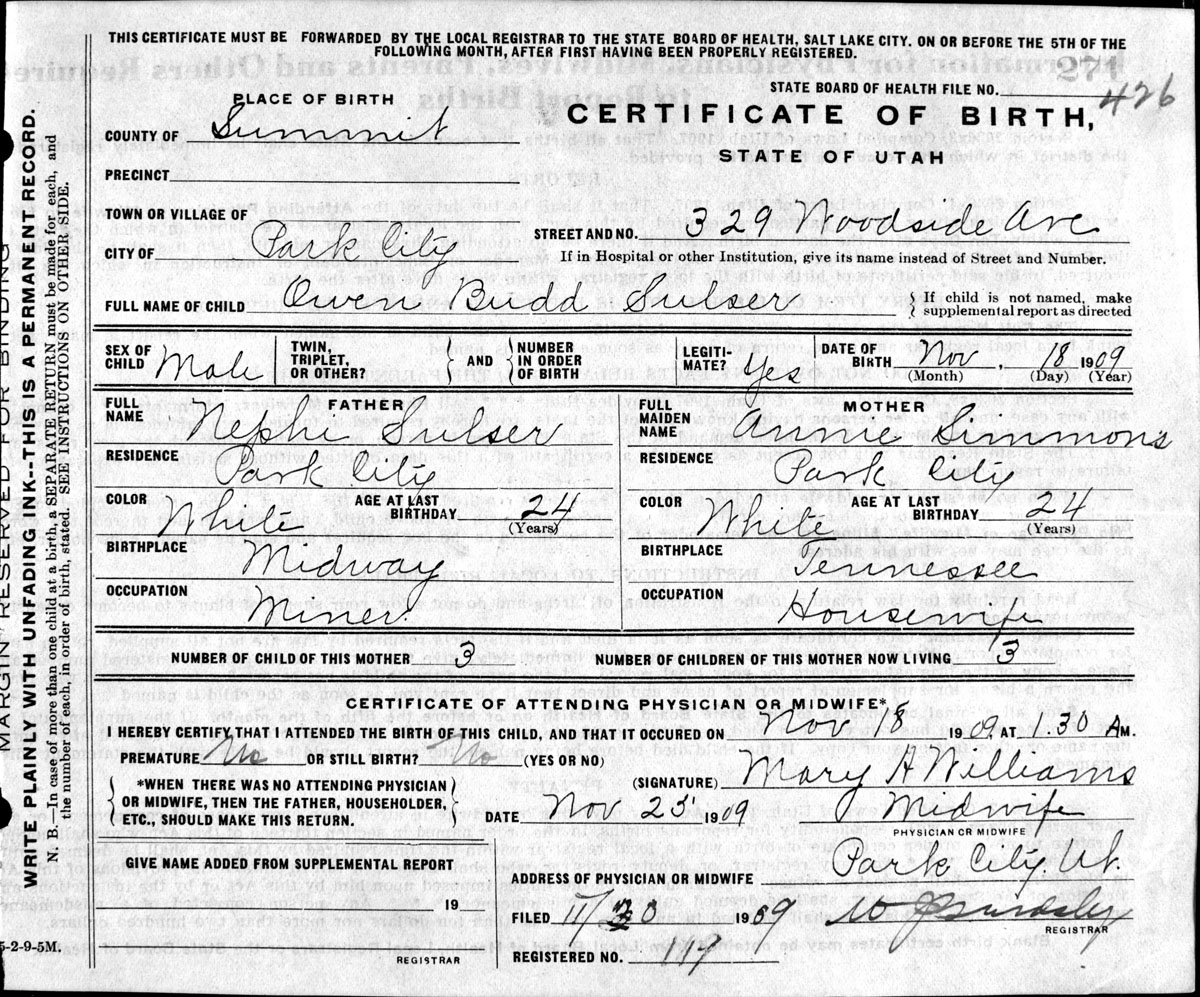 THIS CERTIFICATE MUST BE FORWARDED BY THE LOCAL REGISTRAR TO THE STATE BOARD OF HEALTH, SALT LAKE CITY, ON OR BEFORE THE 5TH OF THE
FOLLOWING MONTH, AFTER FIRST HAVING BEEN PROPERLY REGISTERED.
271
STATE BOARD OF HEALTH FILE NO. 426
PLACE OF BIRTH
CERTIFICATE OF BIRTH,
COUNTY OF Summit
STATE OF UTAH
PRECINCT
TOWN OR VILLAGE OF
STREET AND NO. 329 Woodside Ave
CITY OF Park City
If in Hospital or other Institution, give its name instead of Street and Number.
FULL NAME OF CHILD Owen Budd Sulser
{ If child is not named, make
supplemental report as directed
SEX OF CHILD Male
TWIN, TRIPLET, OR OTHER?
} AND {
NUMBER IN ORDER OF BIRTH
LEGITIMATE? Yes
DATE OF BIRTH Nov, 18 1909
(Month) (Day) (Year)
FATHER
FULL NAME Nephi Sulser
MOTHER
FULL MAIDEN NAME Annie Simmons
RESIDENCE Park City
RESIDENCE Park City
COLOR White
AGE AT LAST BIRTHDAY 24 (Years)
COLOR White
AGE AT LAST BIRTHDAY 24 (Years)
BIRTHPLACE Midway
BIRTHPLACE Tennessee
OCCUPATION Miner
OCCUPATION Housewife
NUMBER OF CHILD OF THIS MOTHER 3
NUMBER OF CHILDREN OF THIS MOTHER NOW LIVING 3
CERTIFICATE OF ATTENDING PHYSICIAN OR MIDWIFE*
I HEREBY CERTIFY THAT I ATTENDED THE BIRTH OF THIS CHILD, AND THAT IT OCCURED ON Nov 18 1909 AT 1.30 A M.
PREMATURE No OR STILL BIRTH? No (YES OR NO)
{ *WHEN THERE WAS NO ATTENDING PHYSICIAN
OR MIDWIFE, THEN THE FATHER, HOUSEHOLDER,
ETC., SHOULD MAKE THIS RETURN. }
(SIGNATURE) Mary A Williams
DATE Nov 23 1909
Midwife
PHYSICIAN OR MIDWIFE
GIVE NAME ADDED FROM SUPPLEMENTAL REPORT
ADDRESS OF PHYSICIAN OR MIDWIFE Park City. Ut.
19
FILED 11/30 1909
REGISTRAR
REGISTRAR
REGISTERED NO. 117
5-2-9-5M.
MARGIN RESERVED FOR BINDING
WRITE PLAINLY WITH UNFADING INK--THIS IS A PERMANENT RECORD.
N. B.—In case of more than one child at a birth, a SEPARATE RETURN must be made for each, and
the number of each, in order of birth, stated. SEE INSTRUCTIONS ON OTHER SIDE.